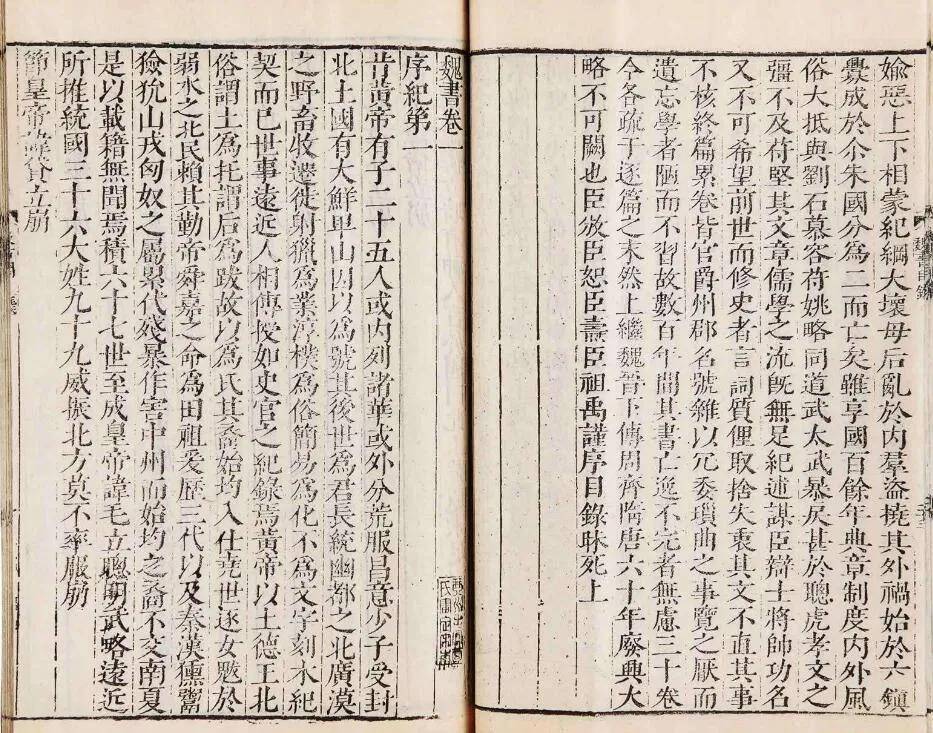 婾惡上下相蒙紀綱大壞母后亂於内羣盜撓其外禍始於六鎮
釁成於尒朱國分為二而亡矣雖享國百餘年典章制度内外風
俗大抵與劉石慕容苻姚略同道武太武暴戾甚於聰虎孝文之
彊不及苻堅其文章儒學之流旣無足紀述謀臣辯士將帥功名
又不可希望前世而修史者言詞質俚取捨失衷其文不直其事
不核終篇累卷皆官爵州郡名號雜以冗委瑣曲之事覽之厭而
遺忘學者陋而不習故數百年間其書亡逸不完者無慮三十卷
今各疏于逐篇之末然上繼魏晉下傳周齊隋唐六十年廢興大
略不可闕也臣攽臣恕臣燾臣祖禹謹序目錄昧死上
魏書目錄
魏書卷一
序紀第一
昔黃帝有子二十五人或内列諸華或外分荒服昌意少子受封
北土國有大鮮卑山因以為號其後世為君長統幽都之北廣漠
之野畜牧遷徙射獵為業淳樸為俗簡易為化不為文字刻木紀
契而已世事遠近人相傳授如史官之紀錄焉黃帝以土德王北
俗謂土為托謂后為跋故以為氏其裔始均入仕堯世逐女魃於
弱水之北民賴其勤帝舜嘉之命為田祖爰歷三代以及秦漢獯鬻
獫狁山戎匈奴之屬累代殘暴作害中州而始均之裔不交南夏
是以載籍無聞焉積六十七世至成皇帝諱毛立聰明武略遠近
所推統國三十六大姓九十九威振北方莫不率服崩
節皇帝諱貸立崩